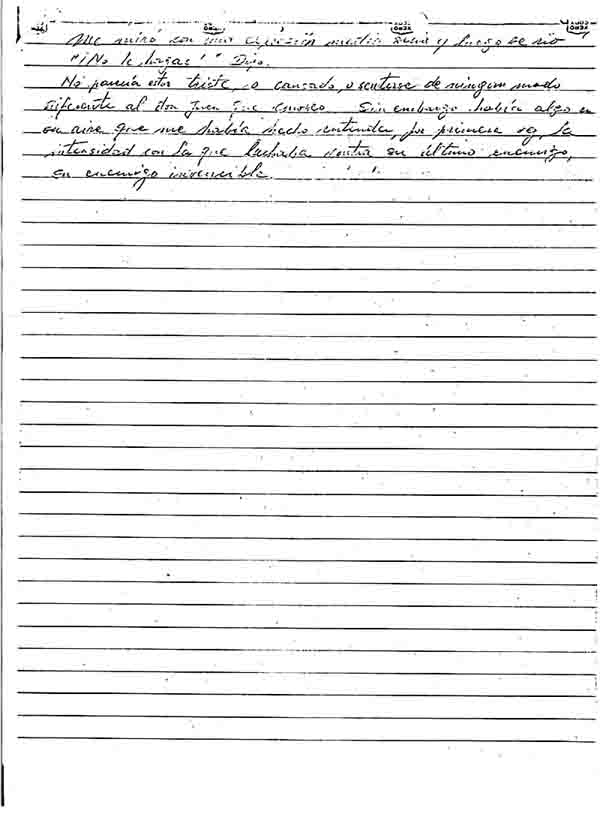 Me miró con una expresión medio seria y luego se rió
"¡No le hagas!" Dijo.
No parecía estar triste, o cansado, o sentirse de ningun modo
diferente al don Juan que conosco. Sin embargo había algo en
su aire que me había hecho entender, por primera vez, la
intensidad con la que luchaba contra su último enemigo,
su enemigo invencible.